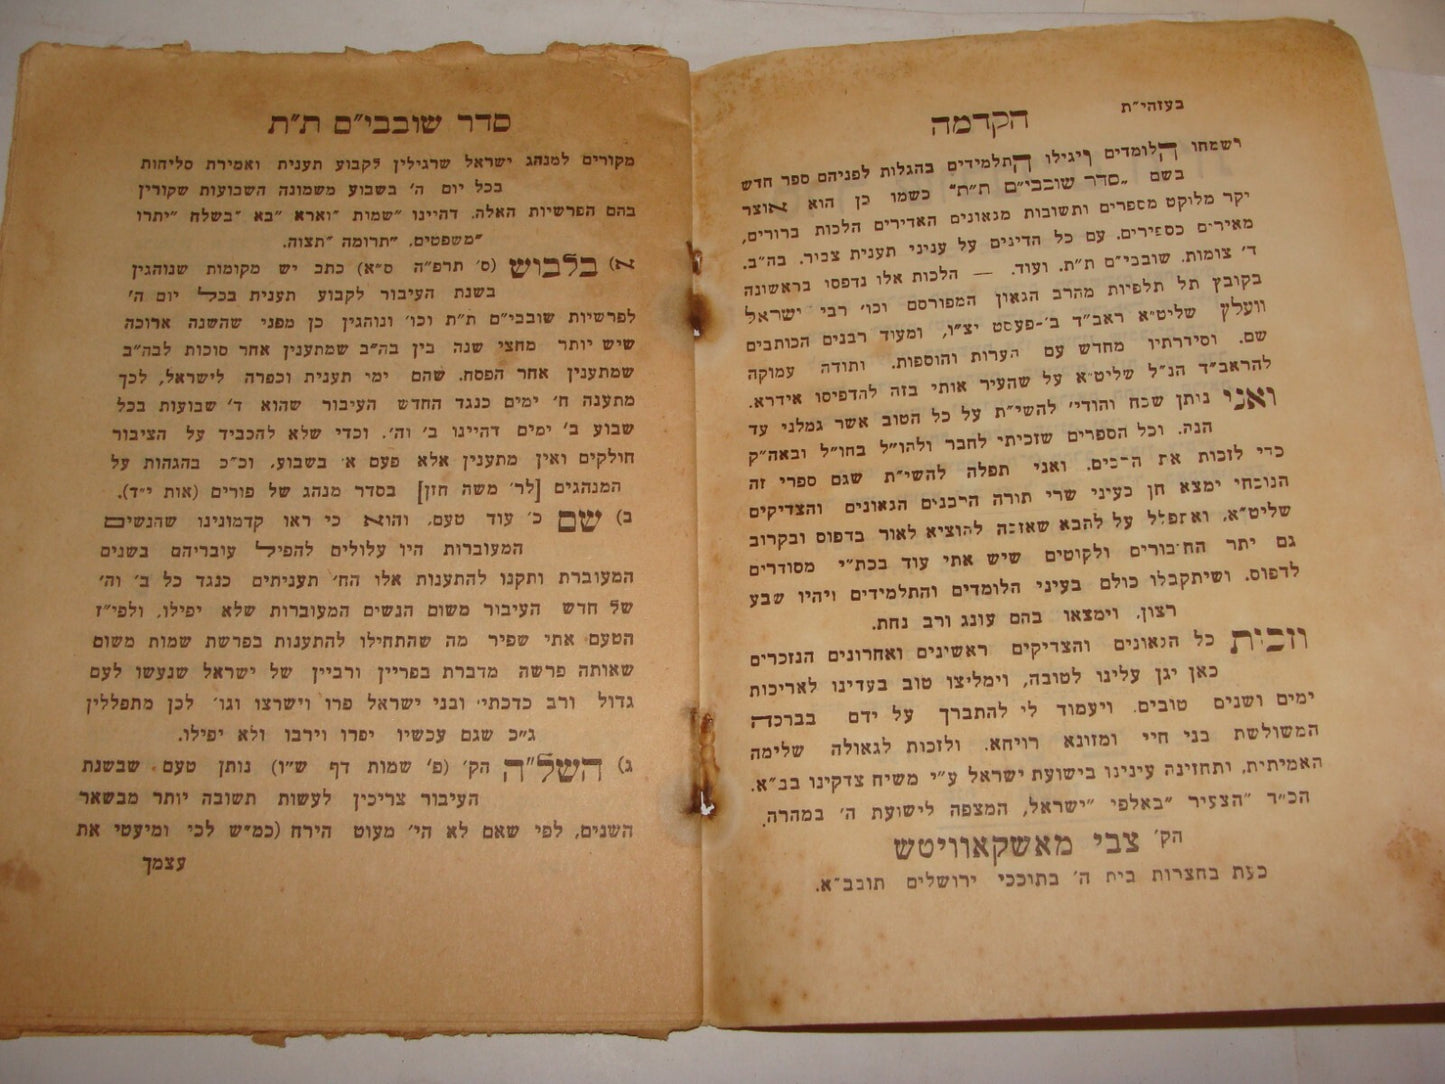 בעזהי״ת
הקדמה
וישמחו הלומדים ויגילו התלמידים בהגלות לפניהם ספר חדש
בשם ״סדר שובבי״ם ת״ת״ כשמו כן הוא אוצר
יקר מלוקט מספרים ותשובות מגאונים האדירים הלכות ברורים,
מאירים כספירים. עם כל הדינים על עניני תענית צבור. בה״ב.
ד׳ צומות. שובבי״ם ת״ת. ועוד. — הלכות אלו נדפסו בראשונה
בקובץ תל תלפיות מהרב הגאון המפורסם וכו׳ רבי ישראל
וועלץ שליט״א ראב״ד ב׳-פעסט יצ״ו, ומעוד רבנים הכותבים
שם. וסידרתיו מחדש עם הערות והוספות. ותודה עמוקה
להראב״ד הנ״ל שליט״א על שהעיר אותי בזה להדפיסו אידרא.
ואני נותן שבח והודי׳ להשי״ת על כל הטוב אשר גמלני עד
הנה. וכל הספרים שזכיתי לחבר ולהו״ל בחו״ל ובאה״ק
כדי לזכות את הרבים. ואני תפלה להשי״ת שגם ספרי זה
הנוכחי ימצא חן בעיני שרי תורה הרבנים הגאונים והצדיקים
שליט״א. ואתפלל על להבא שאזכה להוציא לאור בדפוס ובקרוב
גם יתר החבורים ולקוטים שיש אתי עוד בכת״י מסודרים
לדפוס. ושיתקבלו כולם בעיני הלומדים והתלמידים ויהיו שבע
רצון. וימצאו בהם עונג ורב נחת.
וזכית כל הגאונים והצדיקים ראשינים ואחרונים הנזכרים
כאן יגן עלינו לטובה, וימליצו טוב בעדינו לאריכות
ימים ושנים טובים. ויעמוד לי להתברך על ידם בברכה
המשולשת בני חיי ומזונא רויחא. ולזכות לגאולה שלימה
האמיתית. ותחזינה עינינו בישועת ישראל ע״י משיח צדקינו בב״א.
הכ״ד ״הצעיר ״באלפי ״ישראל, המצפה לישועת ה׳ במהרה.
הק׳ צבי מאשקאוויטש
כעת בחצרות בית ה׳ בתוככי ירושלים תובב״א.
סדר שובבי״ם ת״ת
מקורים למנהג ישראל שרגילין לקבוע תענית ואמירת סליחות
בכל יום ה׳ בשבוע משמונה השבועות שקורין
בהם הפרשיות האלה. דהיינו ״שמות ״וארא ״בא ״בשלח ״יתרו
״משפטים. ״תרומה ״תצוה.
א) בלבוש (ס׳ תרפ״ה ס״א) כתב יש מקומות שנוהגין
בשנת העיבור לקבוע תענית בכל יום ה׳
לפרשיות שובבי״ם ת״ת וכו׳ ונוהגין כן מפני שהשנה ארוכה
שיש יותר מחצי שנה בין בה״ב שמתענין אחר סוכות לבה״ב
שמתענין אחר הפסח. שהם ימי תענית וכפרה לישראל, לכך
מתענה ח׳ ימים כנגד החדש העיבור שהוא ד׳ שבועות בכל
שבוע ב׳ ימים דהיינו ב׳ וה׳. וכדי שלא להכביד על הציבור
חולקים ואין מתענין אלא פעם א׳ בשבוע. וכ״כ בהגהות על
המנהגים [לר׳ משה חזן] בסדר מנהג של פורים (אות י״ד).
ב) שם כ׳ עוד טעם, והוא כי ראו קדמונינו שהנשים
המעוברות היו עלולים להפיל עובריהם בשנים
המעוברת ותקנו להתענות אלו הח׳ תעניתים כנגד כל ב׳ וה׳
של חדש העיבור משום הנשים המעוברות שלא יפילו, ולפי״ז
הטעם אתי שפיר מה שהתחילו להתענות בפרשת שמות משום
שאותה פרשה מדברת בפריין ורביין של ישראל שנעשו לעם
גדול ורב כדכתי׳ ובני ישראל פרו וישרצו וגו׳ לכן מתפללין
ג״כ שגם עכשיו יפרו וירבו ולא יפילו.
ג) השל״ה הק׳ (פ׳ שמות דף ש״ו) נותן טעם שבשנת
העיבור צריכין לעשות תשובה יותר מבשאר
השנים, לפי שאם לא הי׳ מעוט הירח (כמ״ש לכי ומיעטי את
עצמך